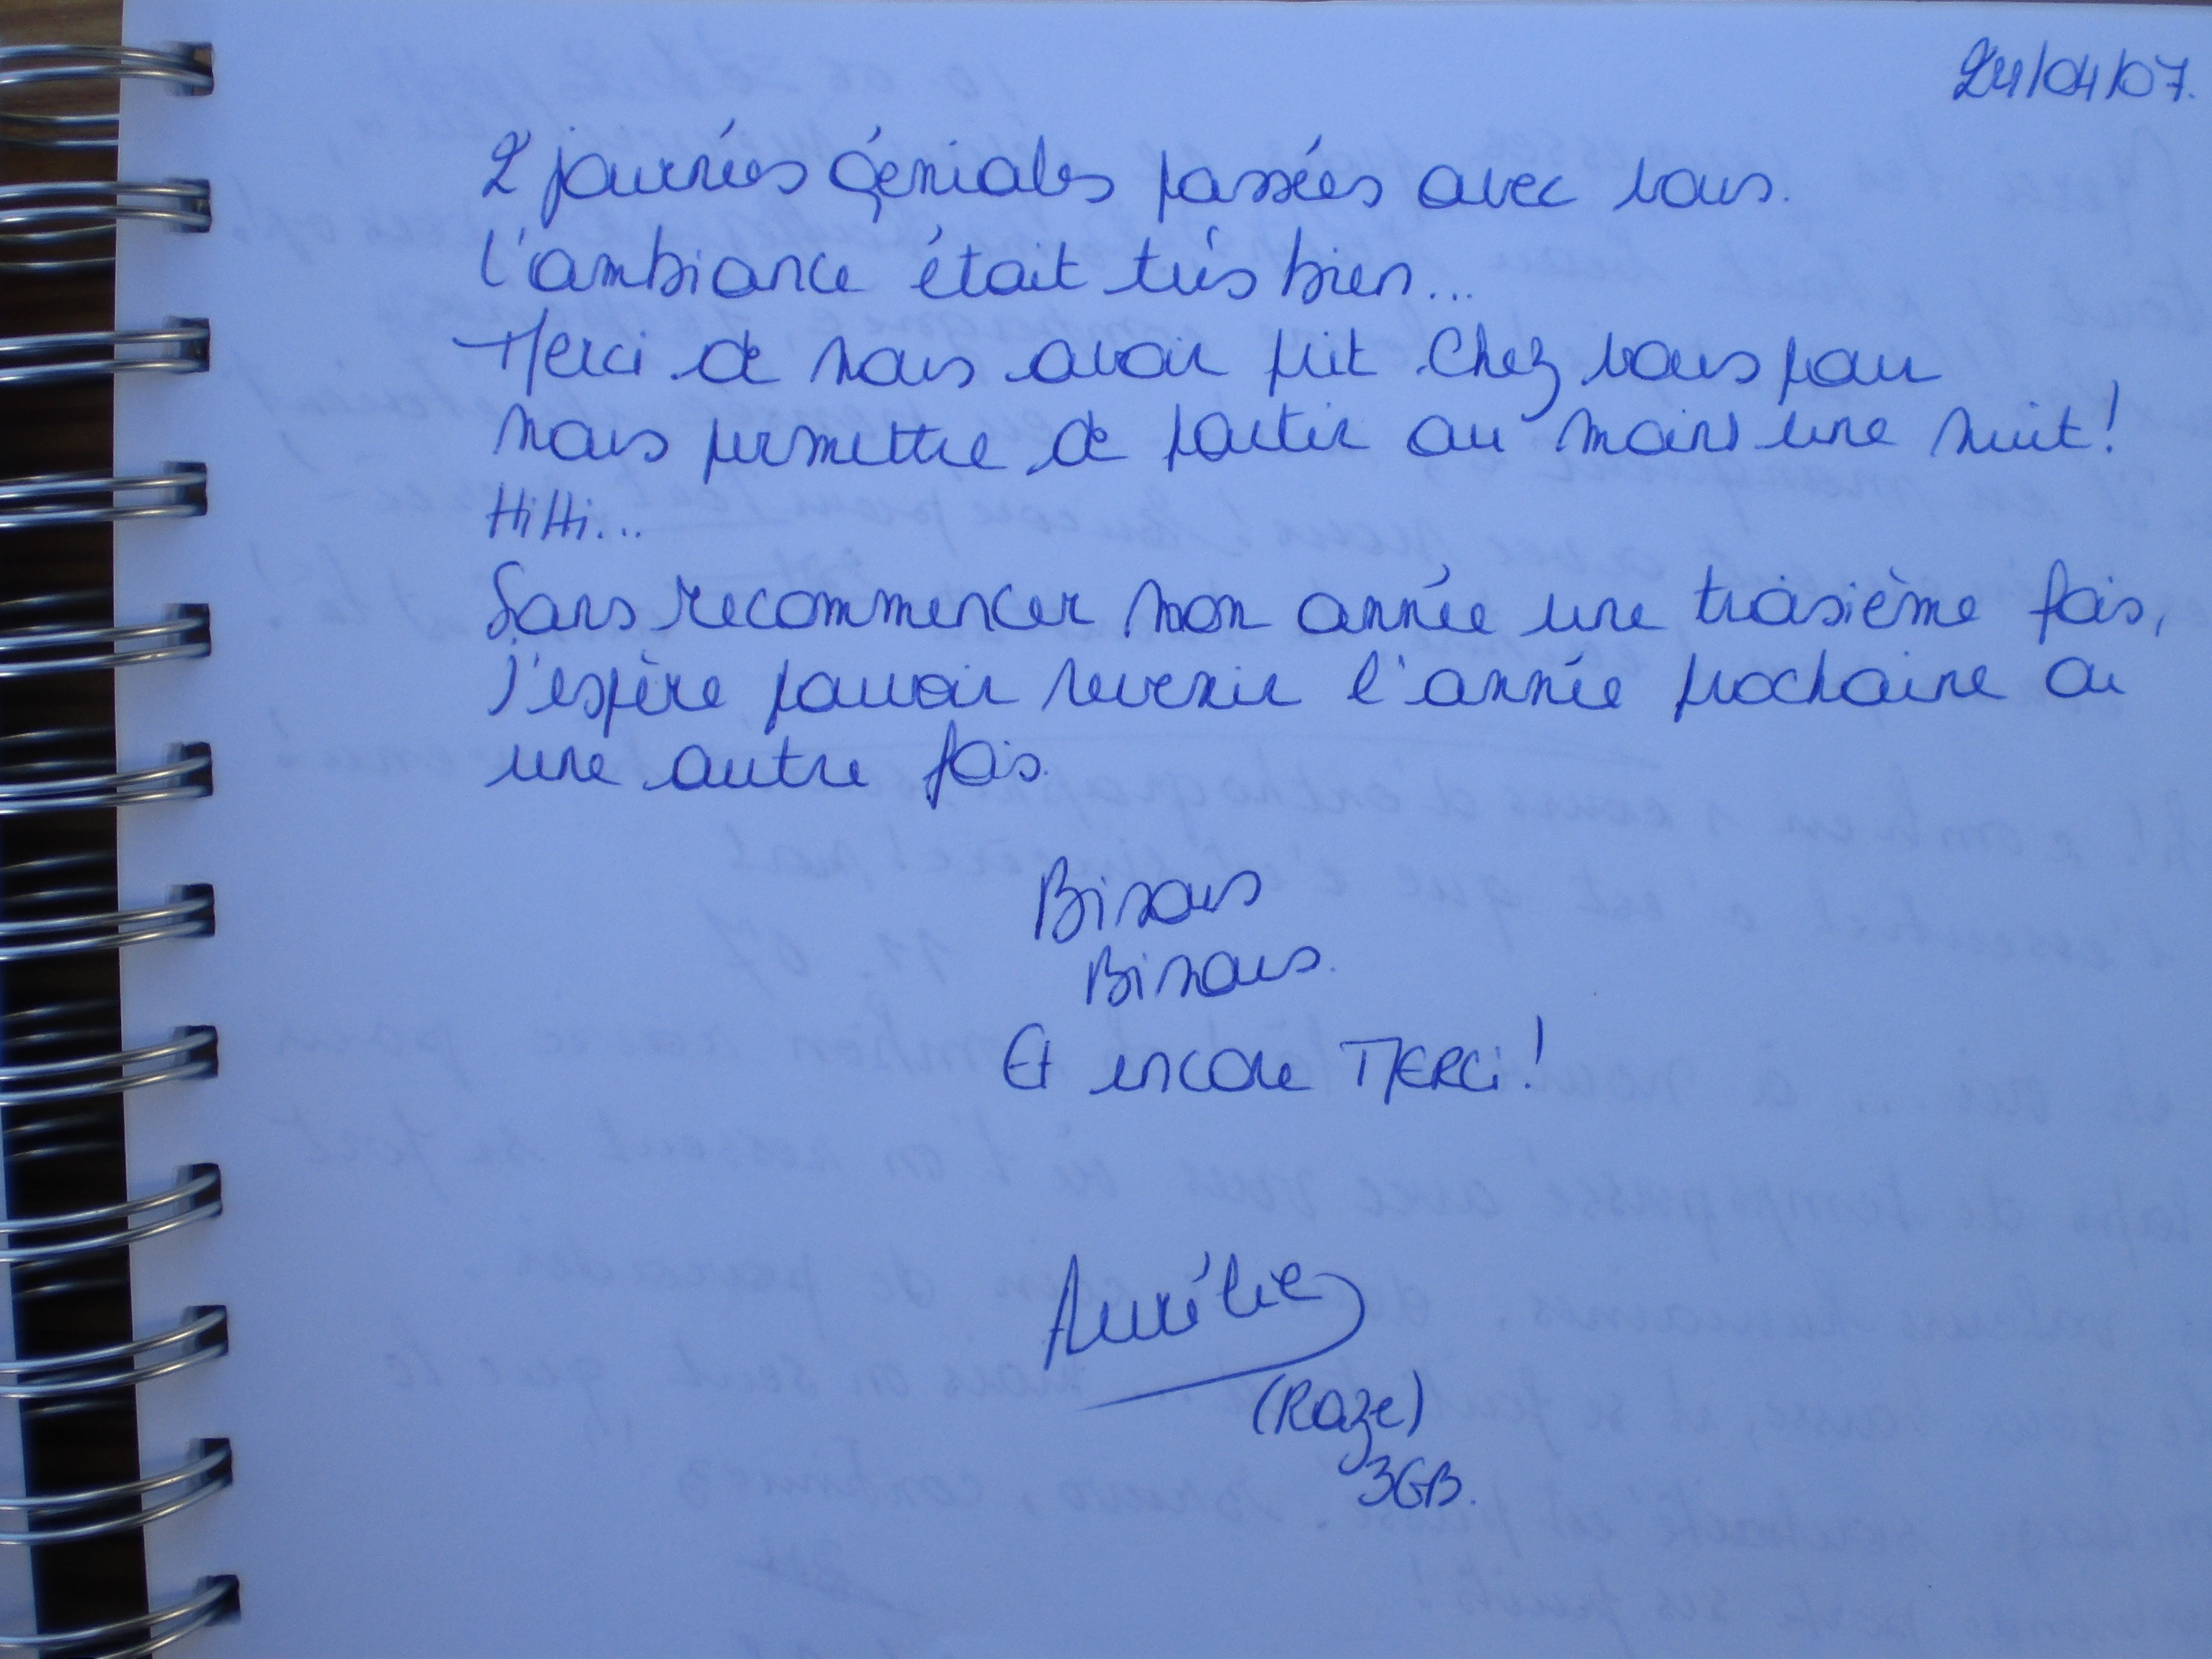 24/04/07.
2 journées géniales passées avec vous.
l'ambiance était très bien...
Merci de nous avoir pris chez vous pour
nous permettre de partir au moins une nuit!
HiHi...
Sans recommencer mon année une troisième fois,
j'espère pouvoir revenir l'année prochaine ou
une autre fois.
Bisous
Bisous.
Et encore MERCi!
Aurélie
(Raze)
3GB.